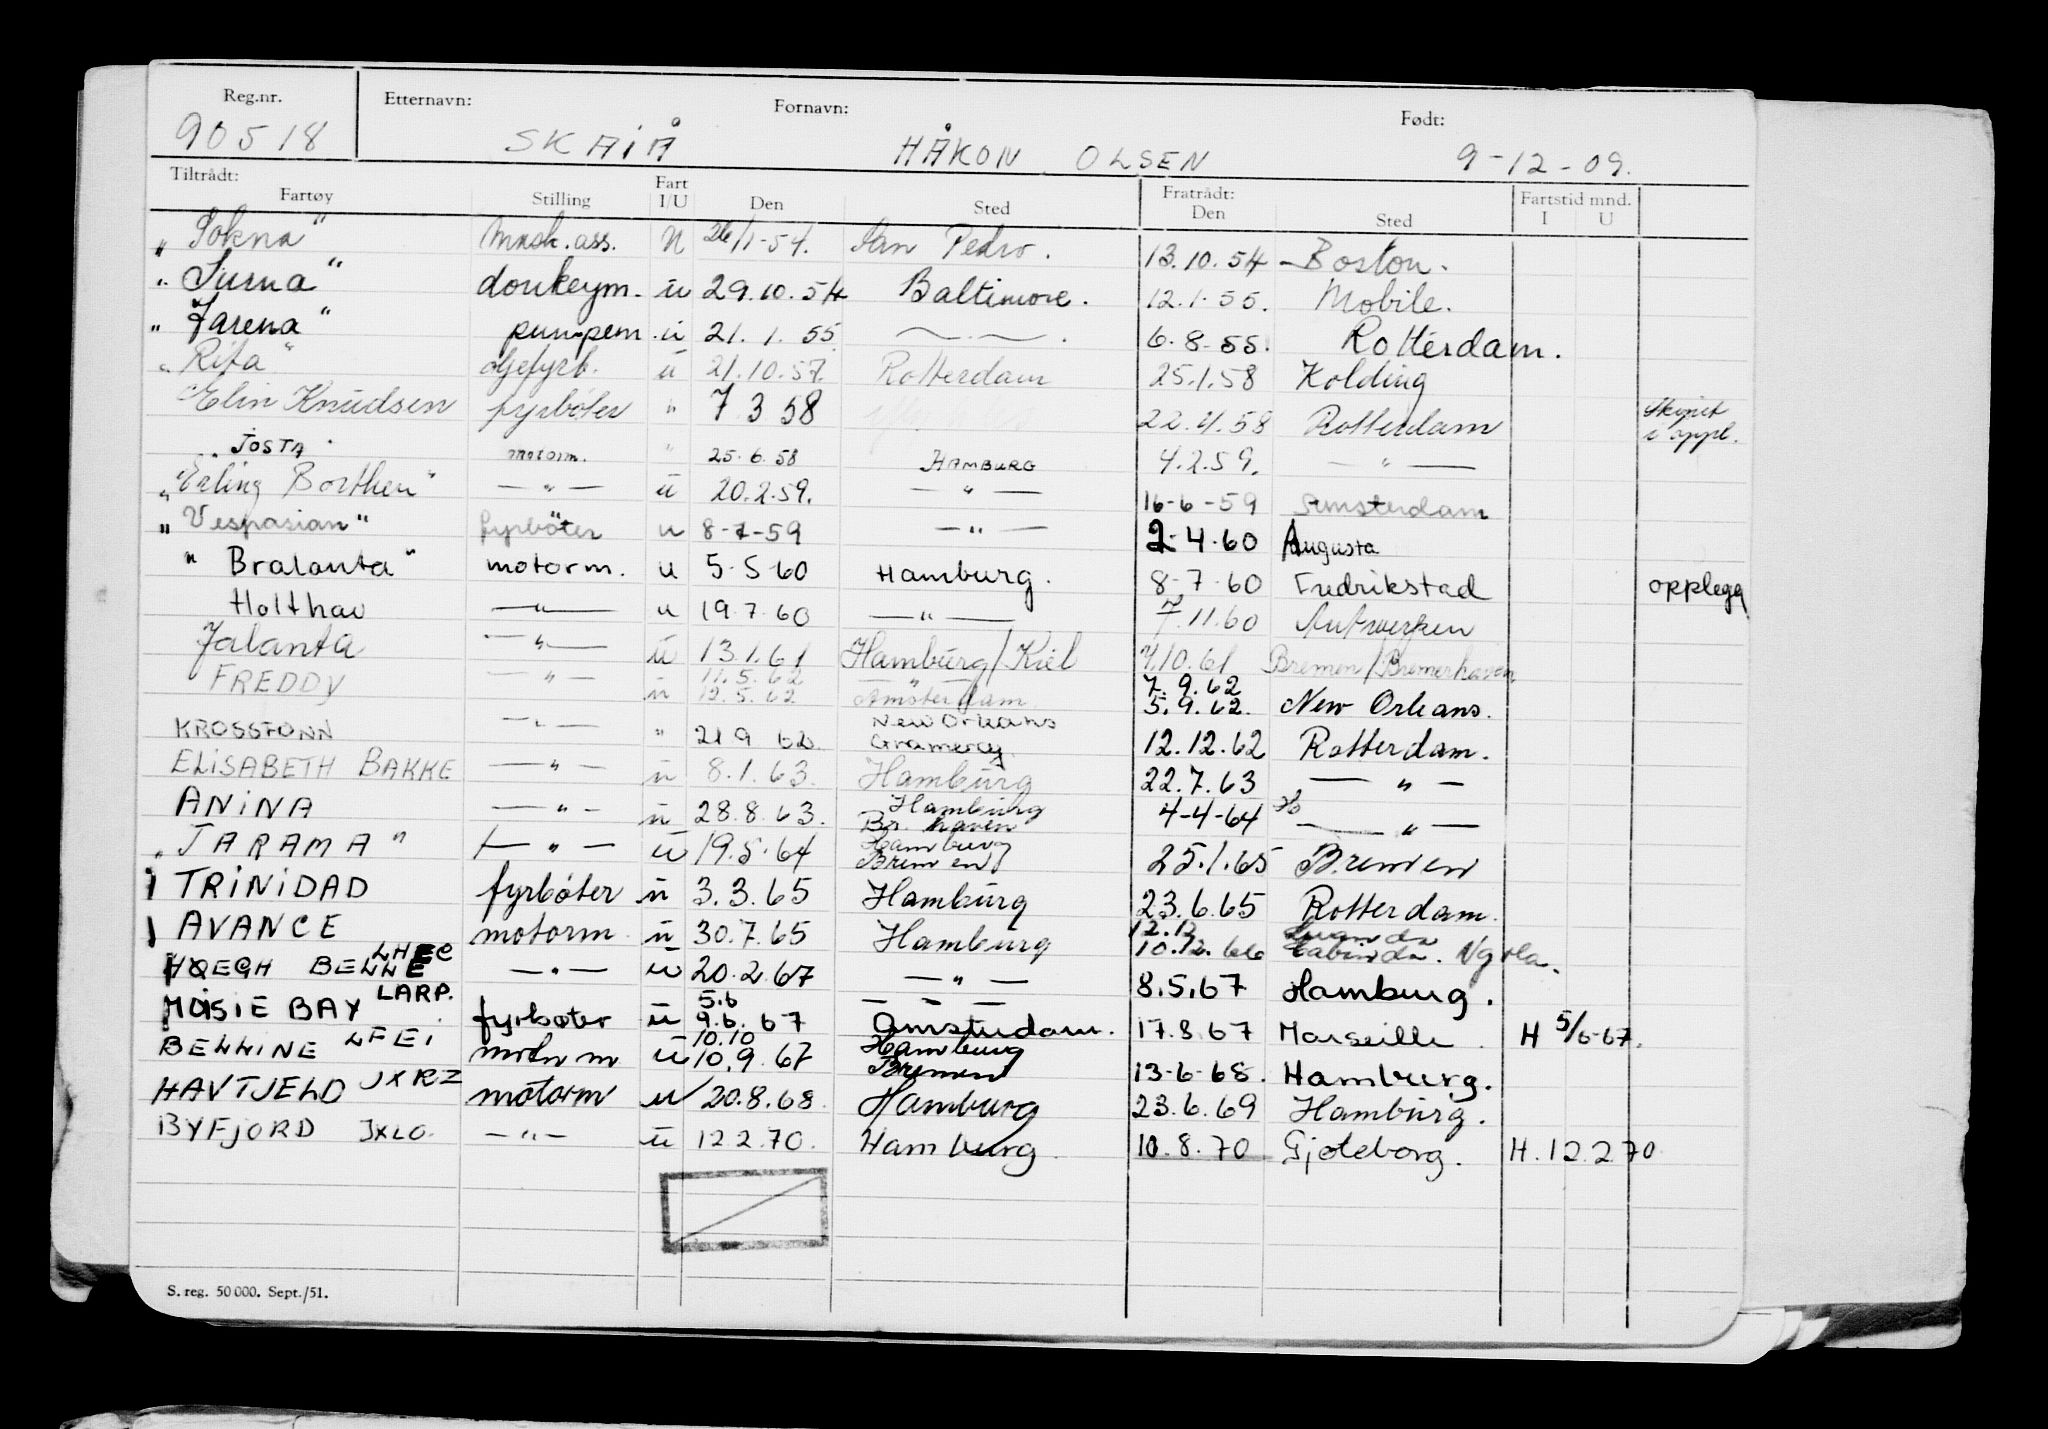 Reg.nr. Etternavn: Fornavn: Født:
90518 SKAIÅ HÅKON OLSEN 9-12-09.
Tiltrådt: Fratrådt: Fartstid mnd.
Fartøy Stilling Fart I/U Den Sted Den Sted I U
"Sokna" Mask.ass. U 26/1-54. San Pedro. 13.10.54 - Boston.
"Surna" donkeym. u 29.10.54 Baltimore. 12.1.55. Mobile.
"Jarena" pumpem. u 21.1.55 —. 6.8.55. Rotterdam.
"Rita" oljefyrb. u 21.10.57. Rotterdam 25.1.58 Kolding
"Elin Knudsen fyrbøter " 7 3 58 22.4.58 Rotterdam Skipet i oppl.
"JOSTA" motorm. " 25.6.58 HAMBURG 4.2.59. — " —
"Erling Borthen" — " — u 20.2.59. — " — 16-6-59 Amsterdam
"Vespasian" fyrbøter u 8-7-59 — " — 2-4-60 Augusta
"Bralanta" motorm. u 5-5-60 Hamburg. 8-7-60 Fredrikstad opplegg
Holthav — " — u 19.7.60 — " — 7.11.60 Antwerpen
Jalanta — " — u 13.1.61 Hamburg/Kiel 7.10.61 Bremen/Bremerhaven
FREDDY — " — u 11.5.62 12.5.62 — " — Amsterdam 7.9.62 5.9.62. New Orleans.
KROSSFONN — " — " 21 9 62. New Orleans Gramercy. 12.12.62 Rotterdam.
ELISABETH BAKKE — " — u 8.1.63. Hamburg 22.7.63 — " —
ANINA — " — u 28.8.63. Hamburg Br. haven 4-4-64 — " —
"TARAMA" — " — u 19.5.64 Hamburg Bremen 25.1.65 Bremen
TRINIDAD fyrbøter u 3.3.65 Hamburg 23.6.65 Rotterdam.
AVANCE motorm u 30.7.65 Hamburg 12.12 10.12.66 Luanda Cabinda.
HØEGH BELLE LHEC — " — u 20.2.67 — " — 8.5.67 Hamburg.
MOSIE BAY LARP. fyrbøter u 5.6 9.6.67 — — — Amsterdam. 17.8.67 Marseille. H 5/6-67.
BELLINE LFEI motorm u 10.10 10.9.67 Hamburg Bremen 13-6-68. Hamburg.
HAVTJELD JXRZ motorm u 20.8.68. Hamburg 23.6.69 Hamburg.
BYFJORD JXLO. — " — u 12 2.70. Hamburg. 10.8.70 Gjøteborg. H. 12.2.70
S. reg. 50 000. Sept./51.